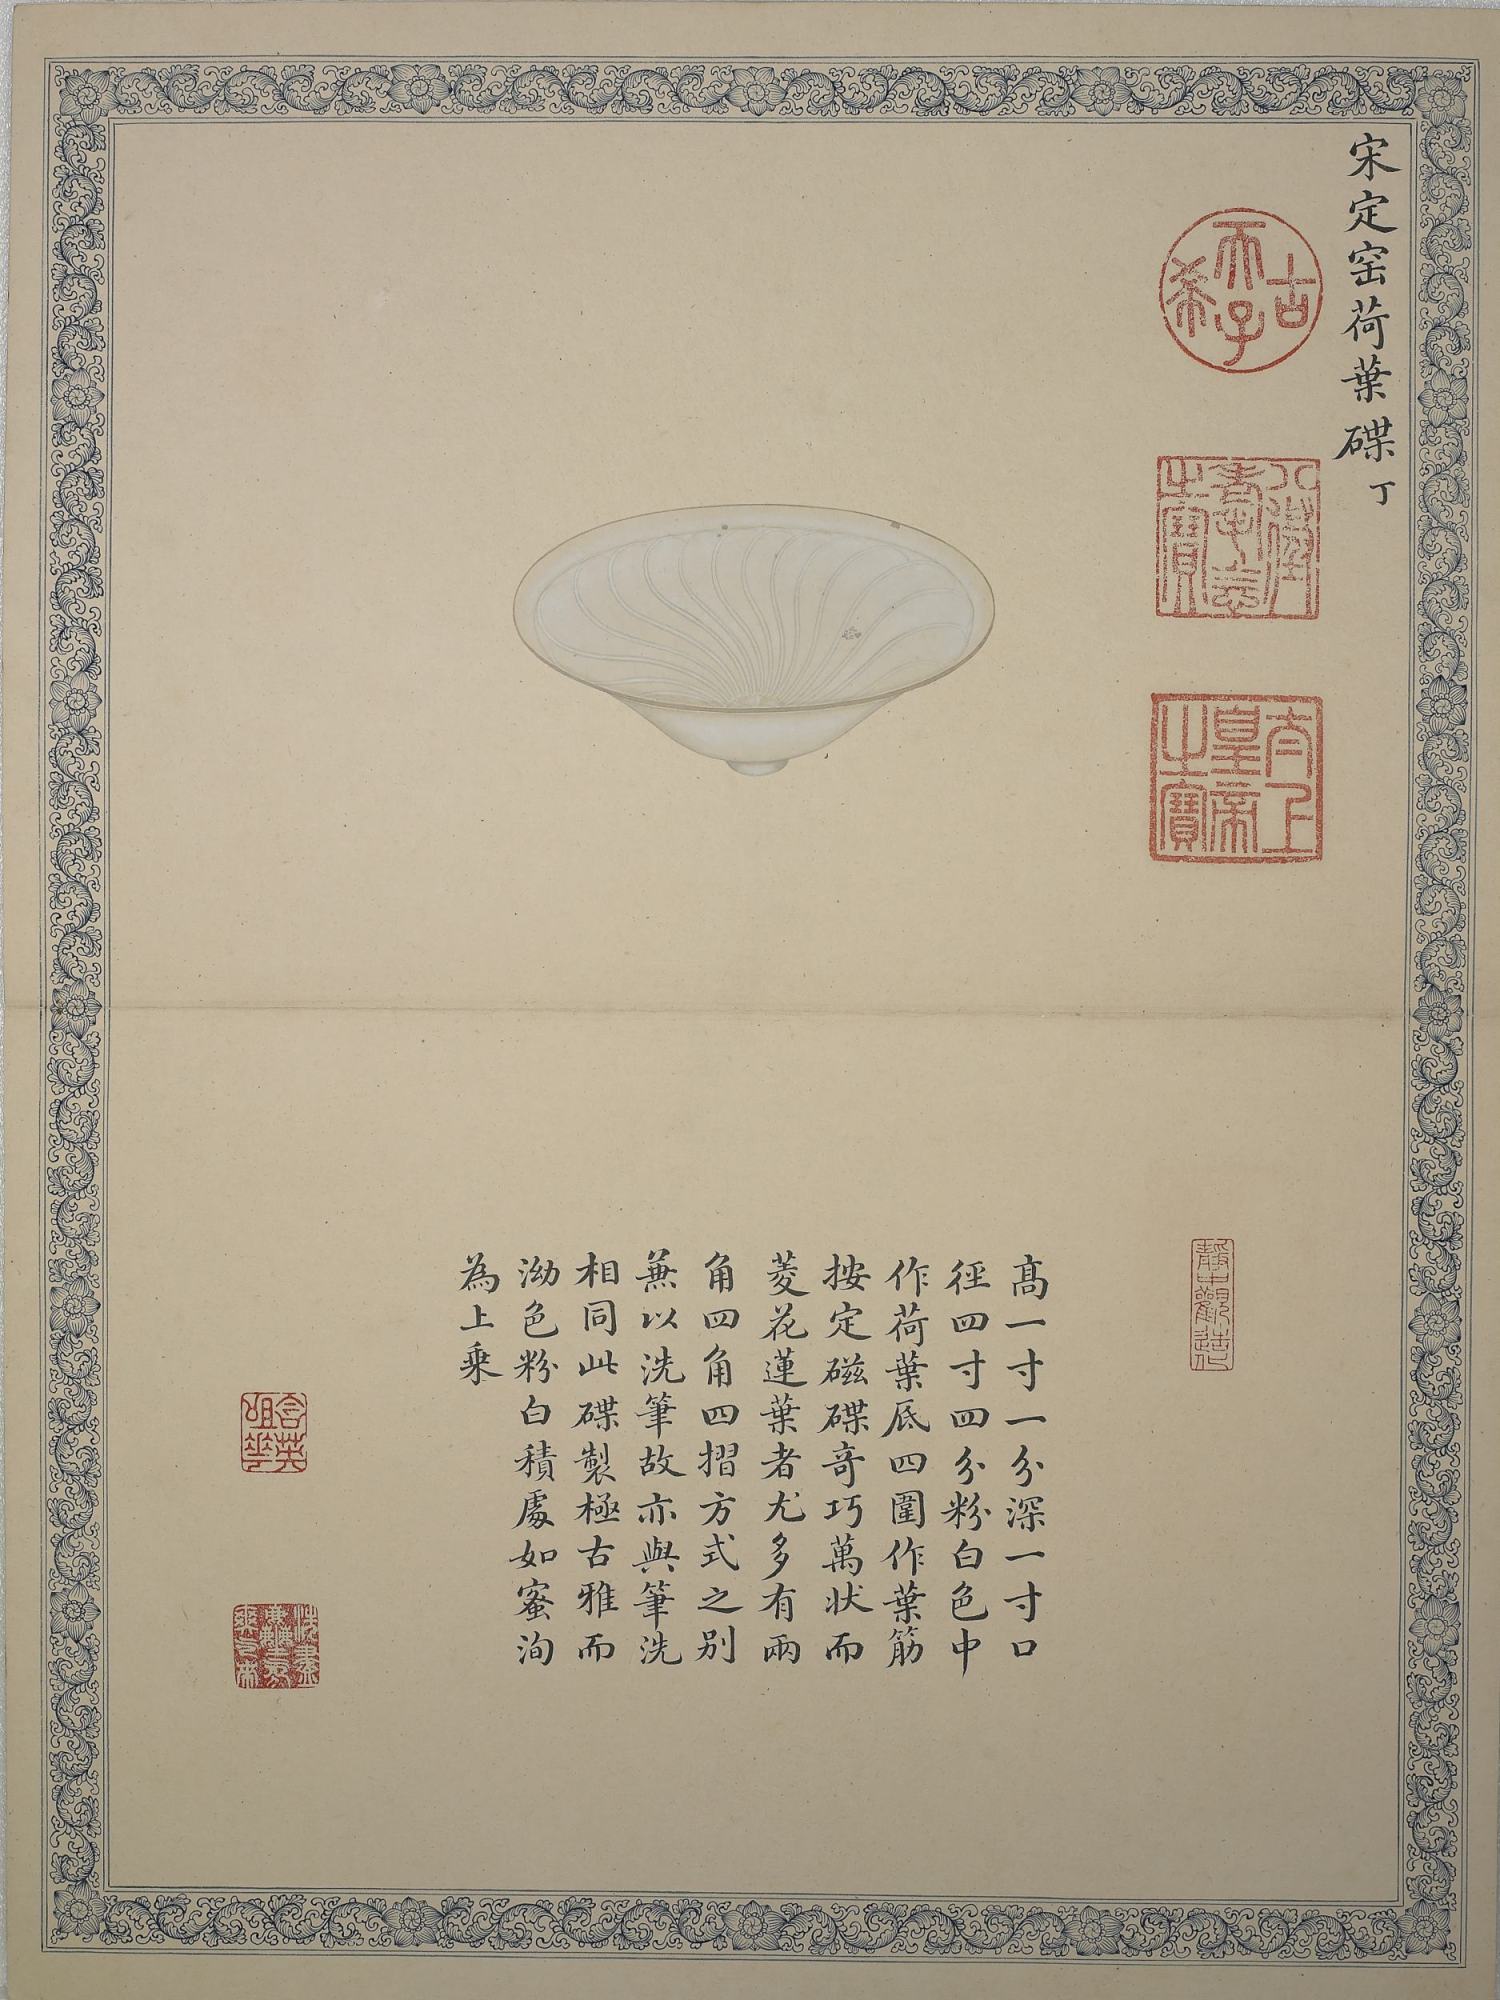 宋定窑荷葉碟 丁
古希天子
八徵耄念之寶
太上皇帝之寶
高一寸一分深一寸口
徑四寸四分粉白色中
作荷葉底四圍作葉筋
按定磁碟奇巧萬狀而
菱花蓮葉者尤多有兩
角四角四摺方式之别
兼以洗筆故亦與筆洗
相同此碟製極古雅而
泑色粉白積處如蜜洵
為上乘
靜中觀造化
含英咀華